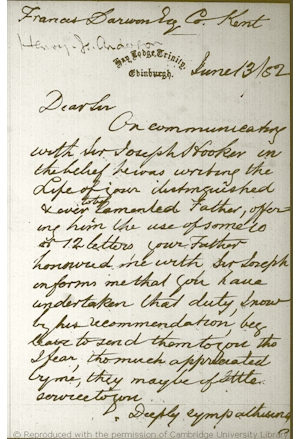 Francis Darwin Esq Co. Kent
Henry. H. Anderson
Hay Lodge, Trinity,
Edinburgh.
June 13/82
Dear Sir
On communicating
with Sir Joseph Hooker in
the belief he was writing the
Life of your distinguished
& ever to be lamented Father, offer
ing him the use of some 10
or 12 letters your Father
honoured me with Sir Joseph
informs me that you have
undertaken that duty, I now
by his recommendation beg
leave to send them to you tho
I fear, tho much appreciated
by me, they may be of little
service to you
Deeply sympathising
© Reproduced with the permission of Cambridge University Library